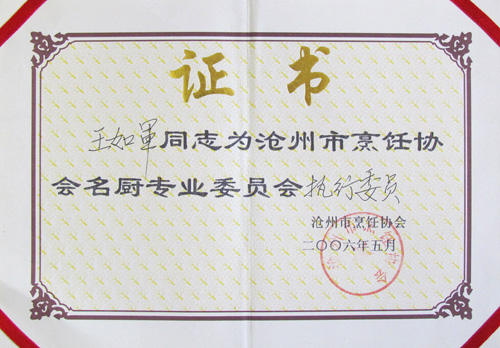 证书
王如军同志为沧州市烹饪协
会名厨专业委员会执行委员
沧州市烹饪协会
二〇〇六年五月